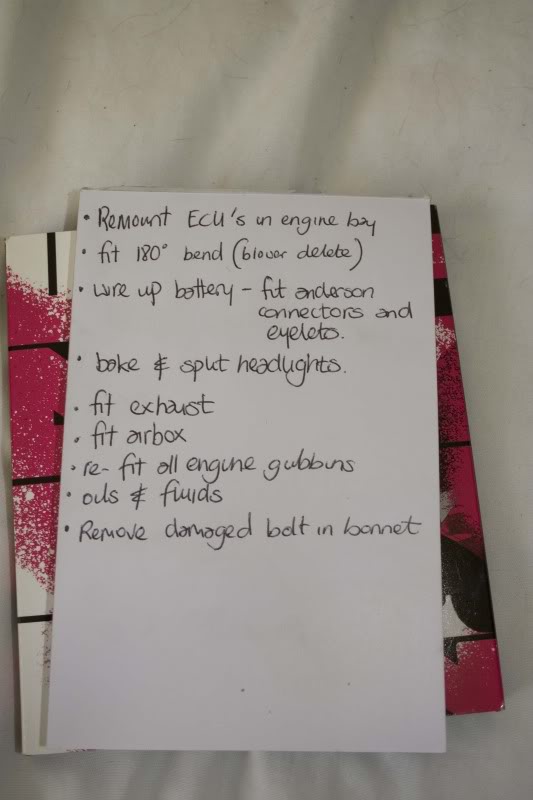 • Remount ECU's in engine bay
• fit 180° bend (blower delete)
• wire up battery - fit anderson
connectors and
eyelets.
• bake & split headlights.
• fit exhaust
• fit airbox
• re-fit all engine gubbins
• oils & fluids
• Remove damaged bolt in bonnet